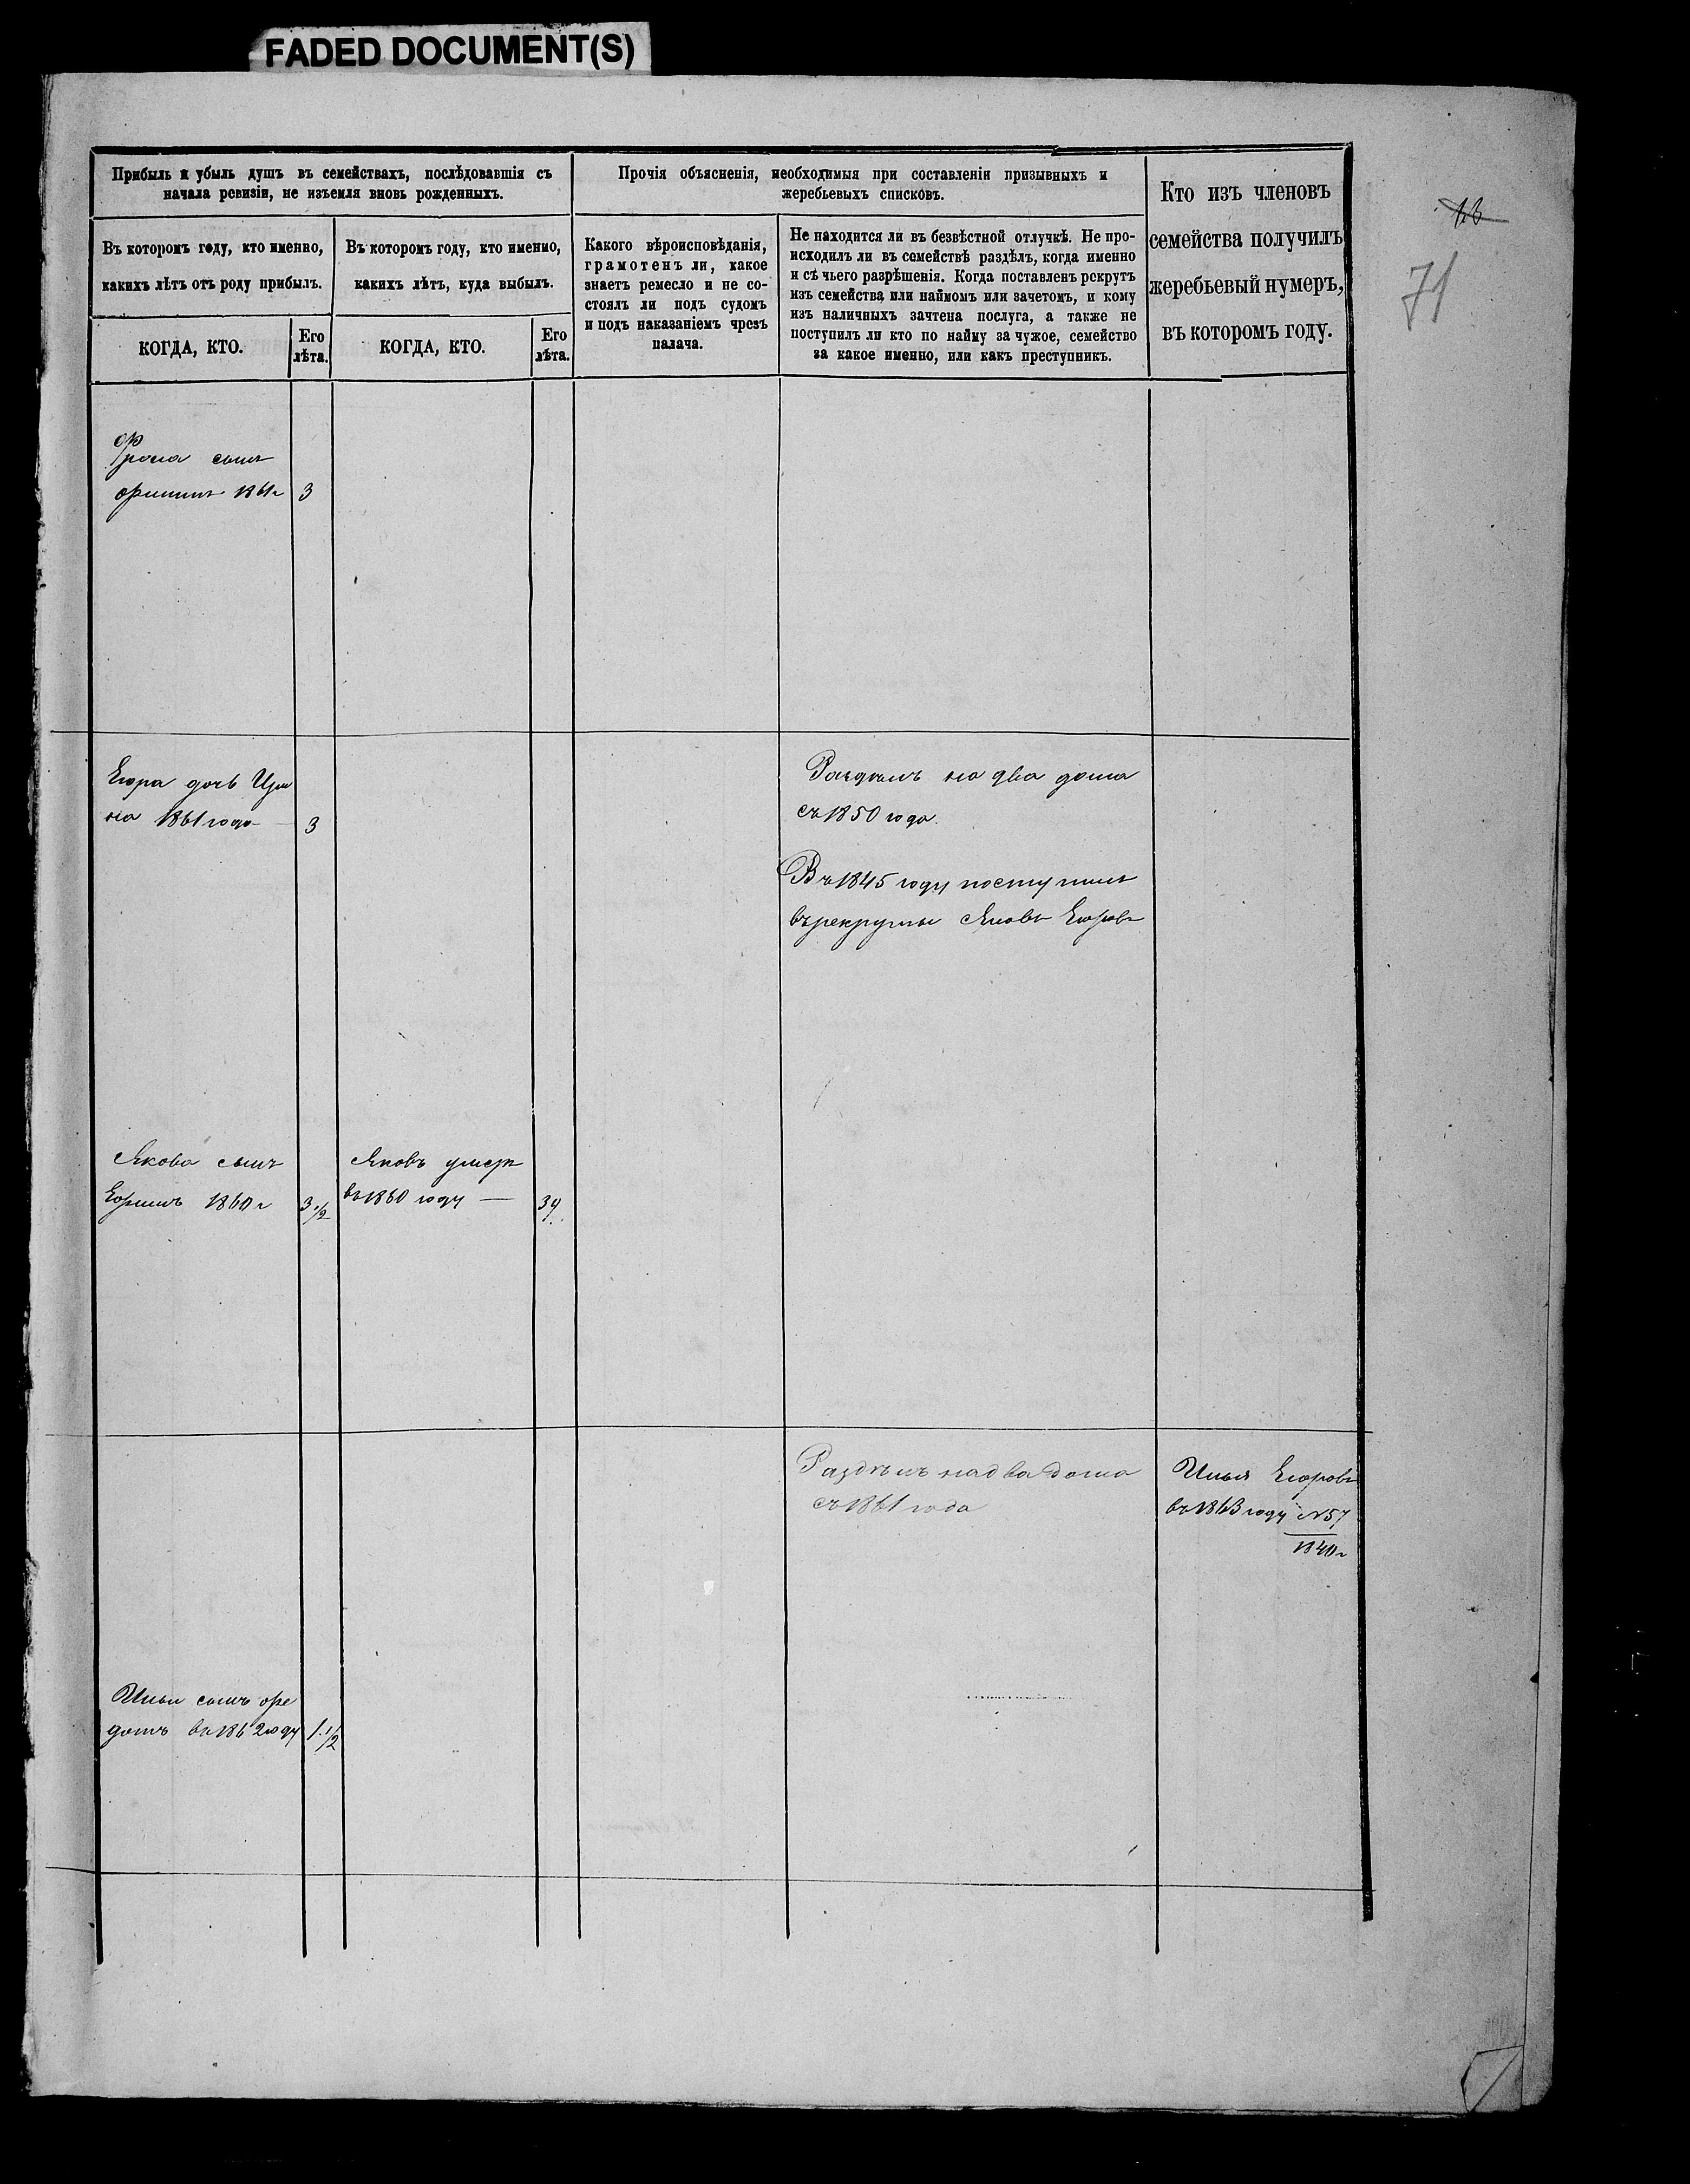 FADED DOCUMENT(S)
Прибыль и убыль душъ въ семействахъ, послѣдовавшія съ
начала ревизіи, не изъемля вновь рожденныхъ.
Прочія объясненія, необходимыя при составленіи призывныхъ и
жеребьевыхъ списковъ.
Кто изъ членовъ
семейства получилъ
жеребьевый нумеръ,
въ которомъ году.
71
Въ которомъ году, кто именно,
какихъ лѣтъ отъ роду прибылъ.
Въ которомъ году, кто именно,
какихъ лѣтъ, куда выбылъ.
Какого вѣроисповѣданія,
грамотенъ ли, какое
знаетъ ремесло и не со-
стоялъ ли подъ судомъ
и подъ наказаніемъ чрезъ
палача.
Не находится ли въ безвѣстной отлучкѣ. Не про-
исходилъ ли въ семействѣ раздѣлъ, когда именно
и съ чьего разрѣшенія. Когда поставленъ рекрутъ
изъ семейства или наймомъ или зачетомъ, и кому
изъ наличныхъ зачтена послуга, а также не
поступилъ ли кто по найму за чужое, семейство
за какое именно, или какъ преступникъ.
КОГДА, КТО.
Его
лѣта.
КОГДА, КТО.
Его
лѣта.
сынъ
1861 г 3
Егора дочь Ири
на 1861 года 3
Раздѣлъ на два дома
съ 1850 года.
Въ 1845 году поступилъ
въ рекруты Яковъ Егоровъ
Якова сынъ
1860 г 3 1/2
Яковъ умеръ
въ 1860 году — 34
Раздѣлъ на два дома
съ 1861 года
Илья Егоровъ
въ 1863 году № 57
1840 г
Ильи сынъ Фе
дотъ въ 1862 году 1 1/2